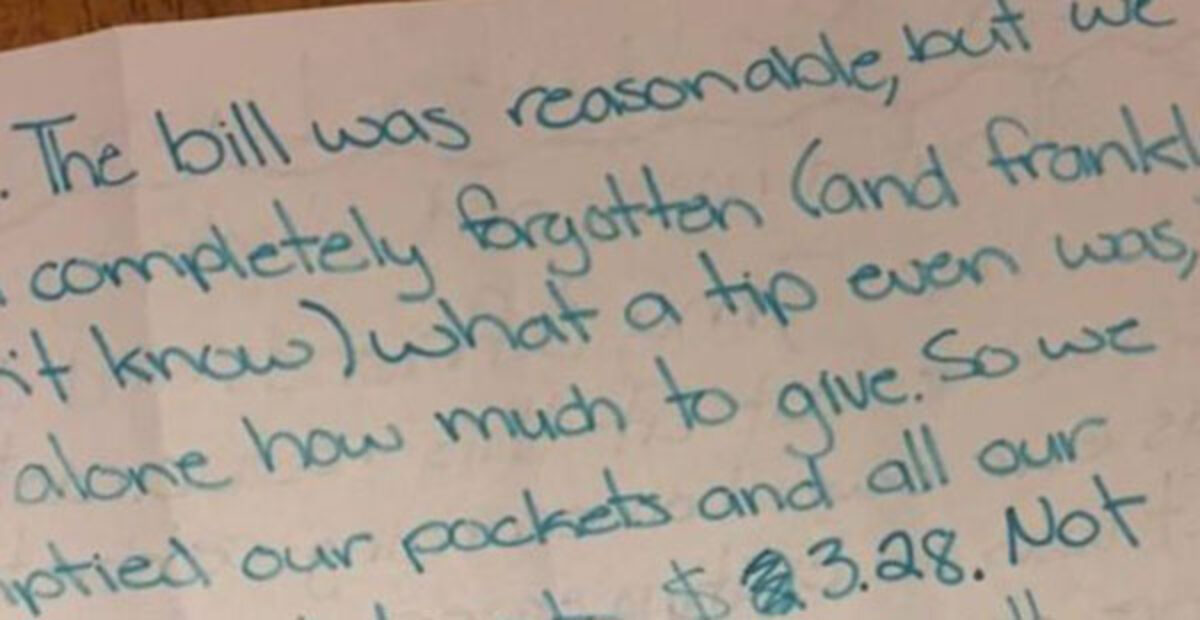 . The bill was reasonable, but we
completely forgotten (and frankl
know) what a tip even was,
alone how much to give. So we
ptied our pockets and all our
$ 3.28. Not